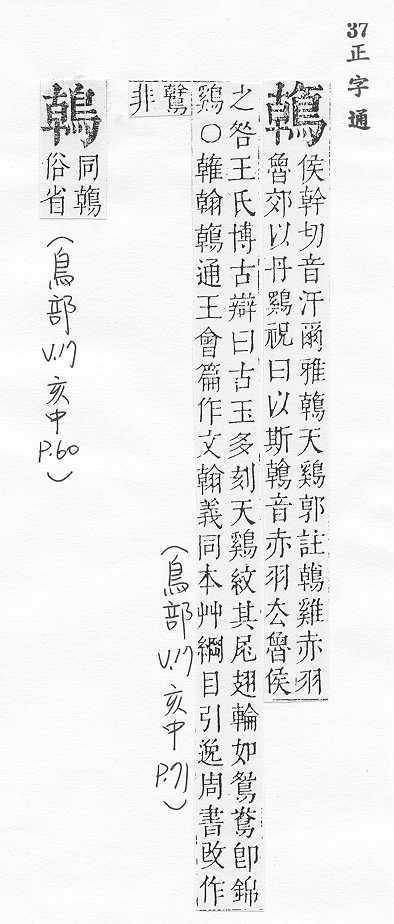 37正字通
鶾
侯幹切音汗爾雅鶾天鷄郭註鶾雞赤羽
魯郊以丹鷄祝曰以斯鶾音赤羽去魯侯
之咎王氏博古辯曰古玉多刻天鷄紋其尾翅輪如鴛鴦卽錦
鷄○雗翰鶾通王會篇作文翰義同本艸綱目引逸周書改作
鷬非
(鳥部 V.17 亥中 P.71)
鶾
同鶾
俗省
(鳥部 V.17 亥中 P.60)